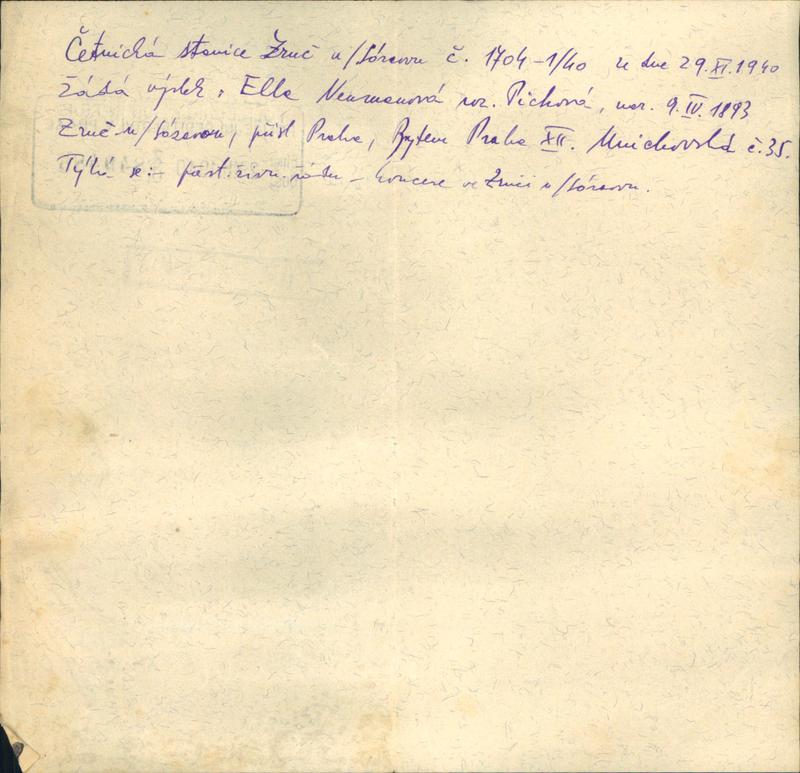 Četnická stanice Zruč n/Sázavou č. 1704-1/40 ze dne 29.XI.1940
žádá výslech: Ella Neumanová roz. Pichová, nar. 9.IV.1893
Zruč n/Sázavou, přísl. Praha, Bytem Praha XII. Mnichovská č.35.
Týká se:- přest. živn. řádu - koncese ve Zruči n/Sázavou.